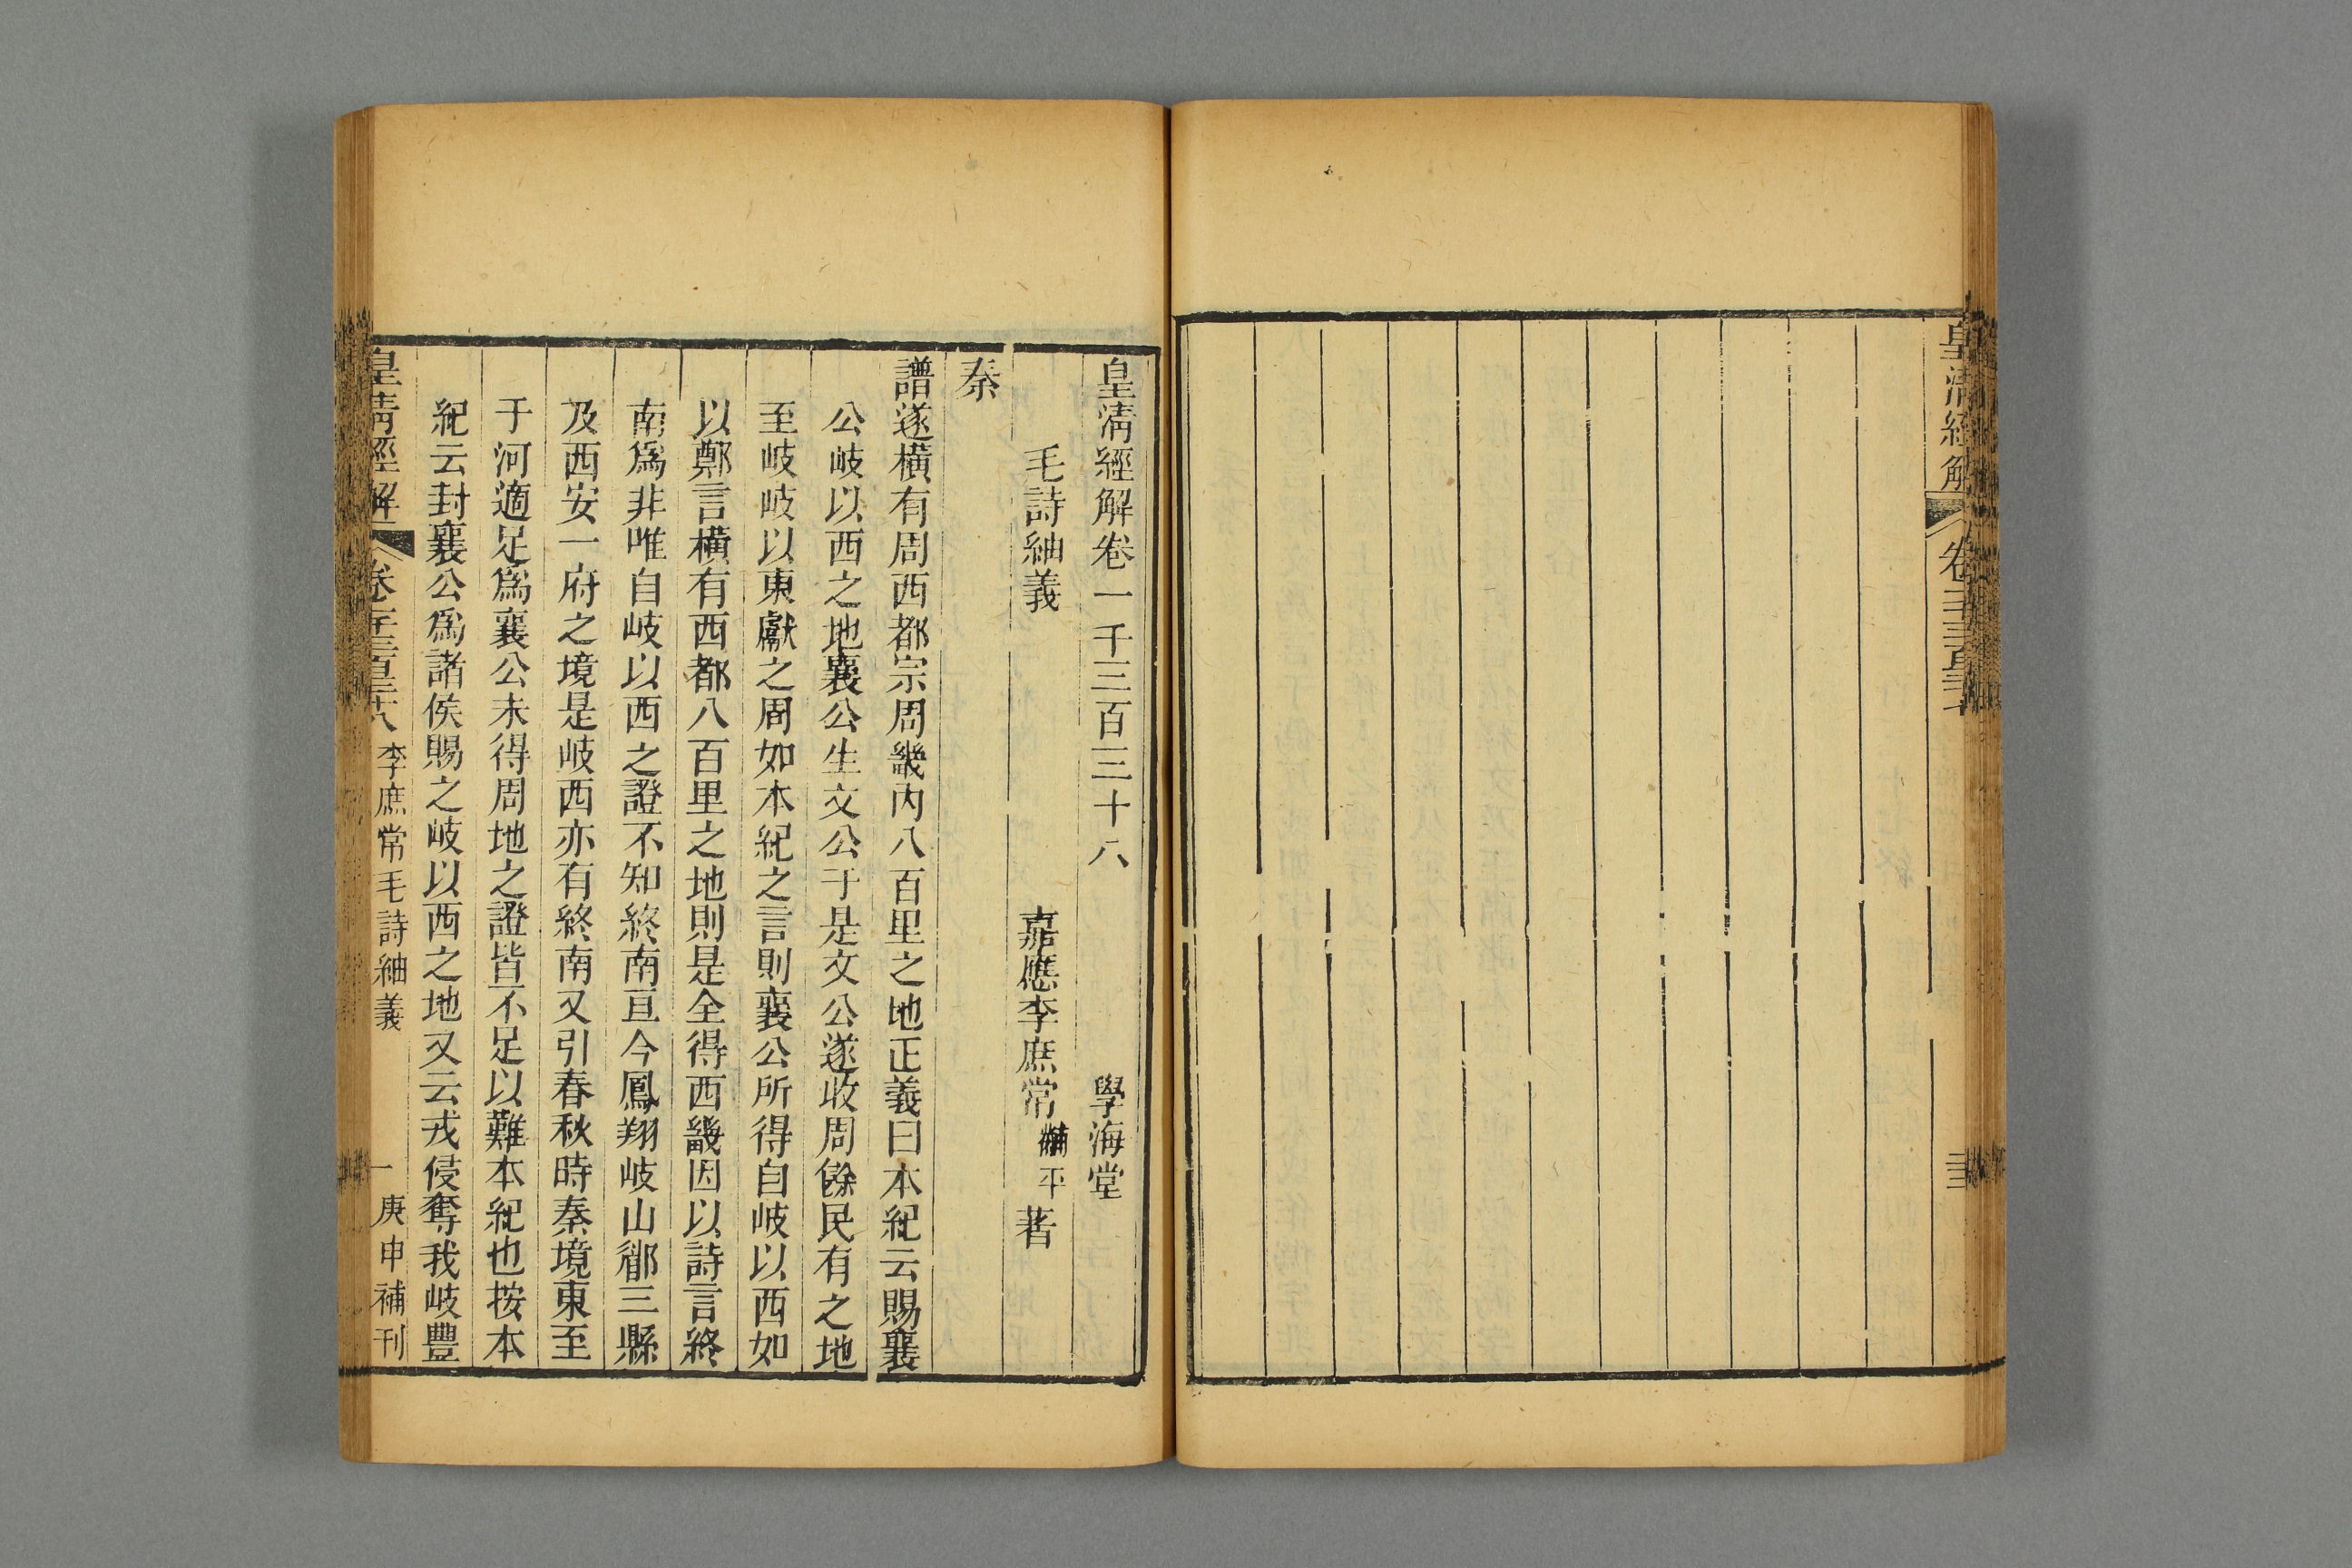 皇清經解
皇清經解卷一千三百三十八
學海堂
毛詩紬義
嘉應李庶常黼平著
秦
譜遂橫有周西都宗周畿內八百里之地正義曰本紀云賜襄
公岐以西之地襄公生文公于是文公遂收周餘民有之地
至岐岐以東獻之周如本紀之言則襄公所得自岐以西如
以鄭言橫有西都八百里之地則是全得西畿因以詩言終
南爲非唯自岐以西之證不知終南亘今鳳翔岐山郿三縣
及西安一府之境是岐西亦有終南又引春秋時秦境東至
于河適足爲襄公未得周地之證皆不足以難本紀也按本
紀云封襄公爲諸侯賜之岐以西之地又云戎侵奪我岐豐
皇清經解
李庶常毛詩紬義
一
庚申補刊